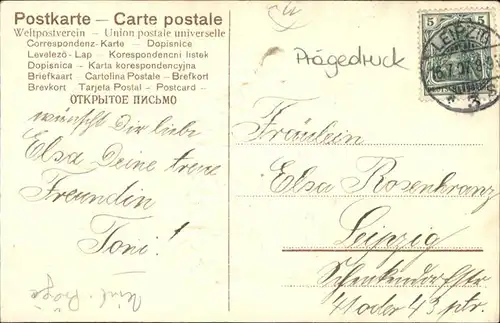 Postkarte – Carte postale
Weltpostverein – Union postale universelle
Correspondenz-Karte – Dopisnice
Levelező-Lap – Korespondencni listek
Dopisnica – Karta korespondencyjna
Briefkaart – Cartolina Postale – Brefkort
Brevkort – Tarjeta Postal – Postcard –
ОТКРЫТОЕ ПИСЬМО
wünscht Dir liebe
Elsa Deine treue
Freundin
Toni!
Prägedruck
5 5
LEIPZIG
3
Fräulein
Elsa Rosenkranz
Leipzig
Schenkendorfstr
41 oder 43 ptr.